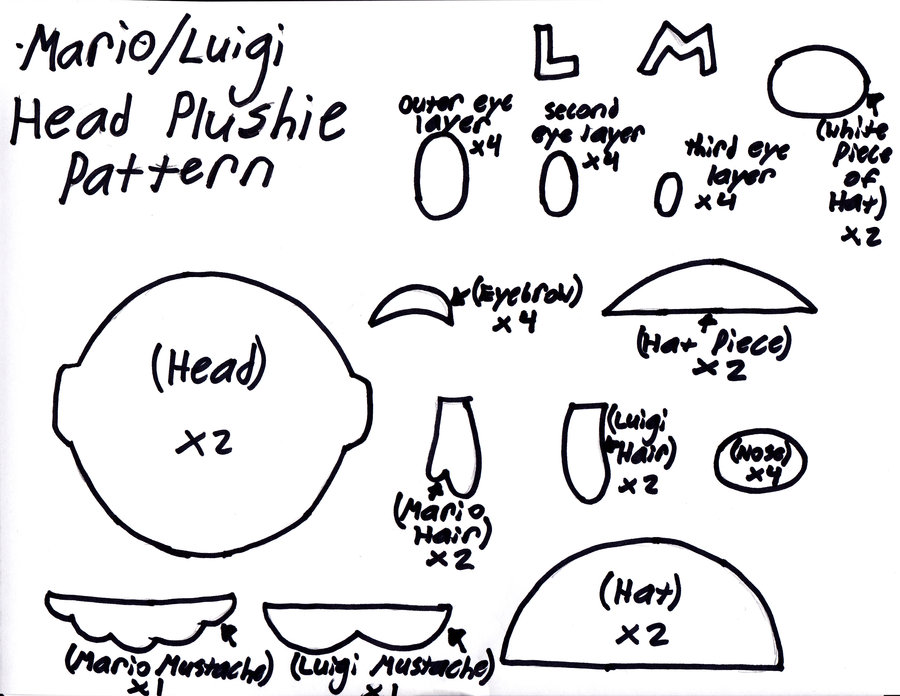 Mario/Luigi
Head Plushie
Pattern
L
M
outer eye
layer
x4
second
eye layer
x4
third eye
layer
x4
(white
piece
of
Hat)
x2
(Eyebrow)
x4
(Hat Piece)
x2
(Head)
x2
(Mario
Hair)
x2
(Luigi
Hair)
x2
(Nose)
x4
(Hat)
x2
(Mario Mustache)
x1
(Luigi Mustache)
x1